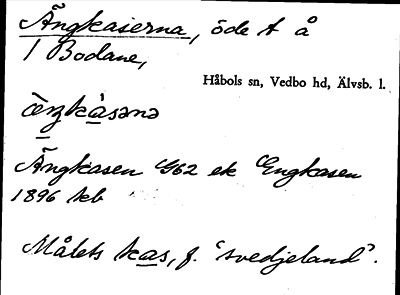 Ängkaserna, öde t å
1 Bodane,
Håbols sn, Vedbo hd, Älvsb. l.
ä̀ŋka̍sənə
Ängkasen G62 ek Engkasen
1896 kb
Målets kas, f. "svedjeland".